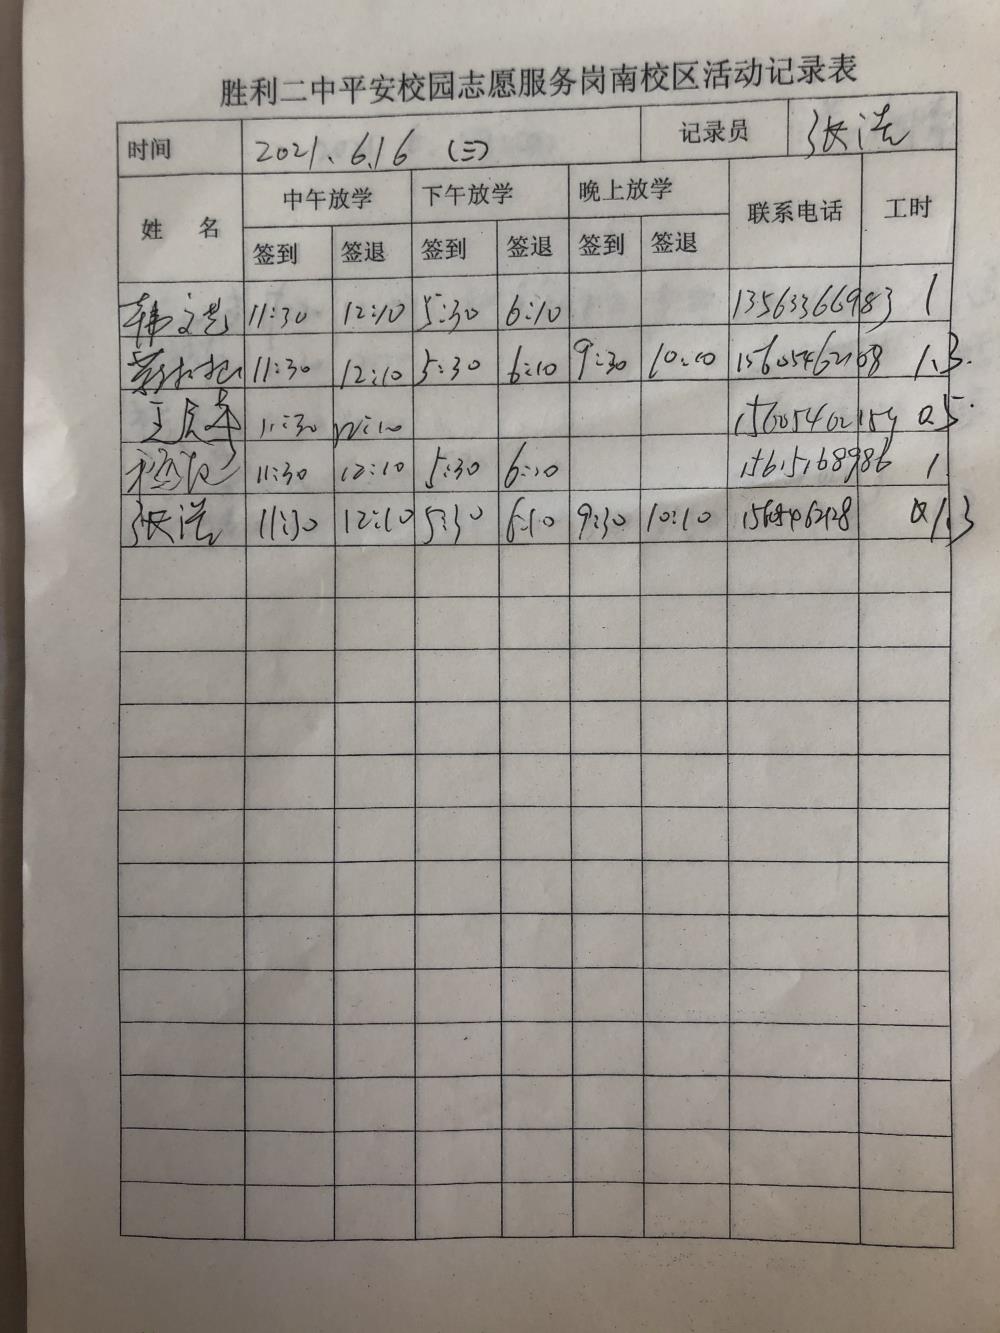 胜利二中平安校园志愿服务岗南校区活动记录表
时间 2021.6.16 (三) 记录员 张浩
姓 名 中午放学 下午放学 晚上放学 联系电话 工时
签到 签退 签到 签退 签到 签退
11:30 12:10 5:30 6:10 13563366983 1
11:30 12:10 5:30 6:10 9:30 10:10 15605462108 1.3.
11:30 12:10 0.5.
11:30 12:10 5:30 6:10 15615168986 1
张浩 11:30 12:10 5:30 6:10 9:30 10:10 1.3